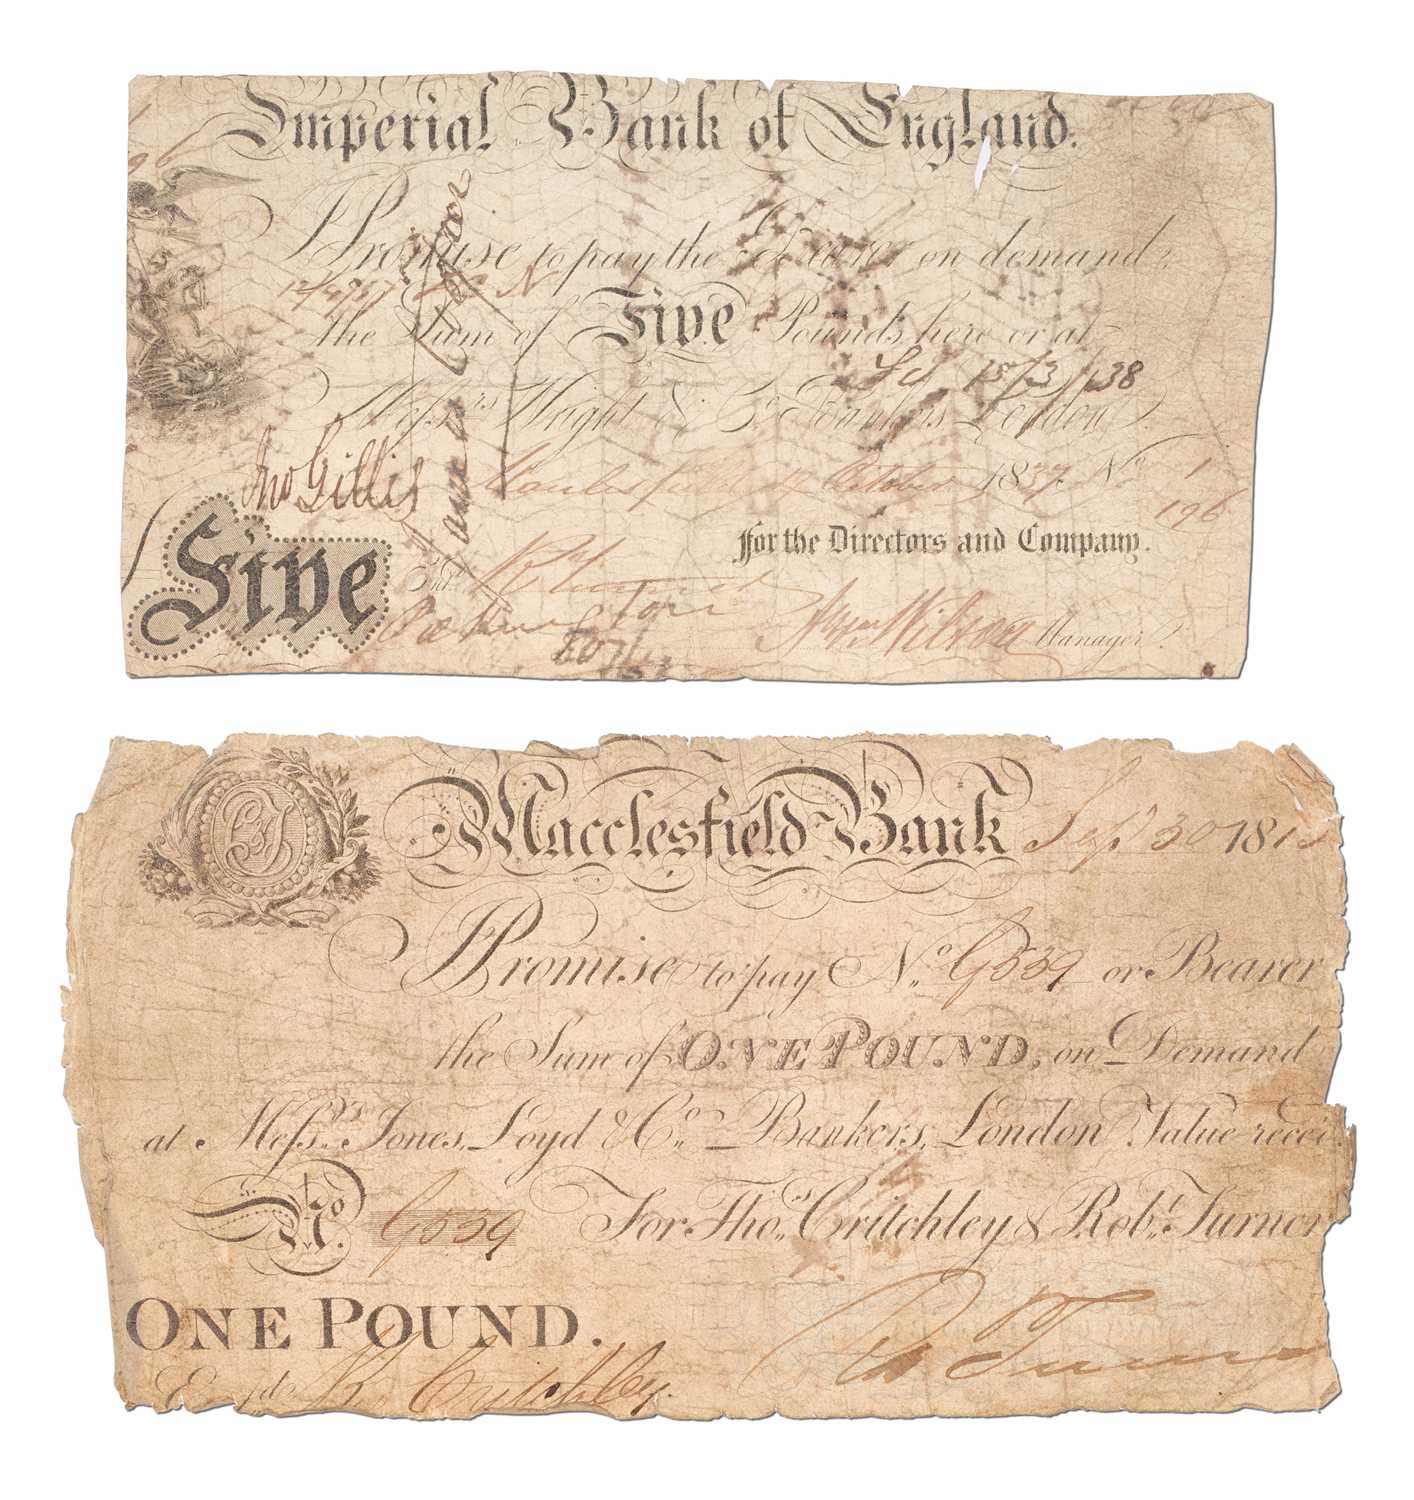 Imperial Bank of England.
I Promise to pay the Bearer on demand
the Sum of Five Pounds here or at
Mess.rs Wright & Co. Bankers London.
Jno Gillis
October 1837 No. 1
196
for the Directors and Company.
Five
Ent.
Wilson Manager.
Macclesfield Bank Sep 30 181
I Promise to pay No. G539 or Bearer
the Sum of ONE POUND, on Demand
at Mess.rs Jones, Loyd & Co. Bankers, London Value recev.
No. G539 For Thos. Critchley & Robt. Turner
ONE POUND.
Ent.d Critchley.
Turner